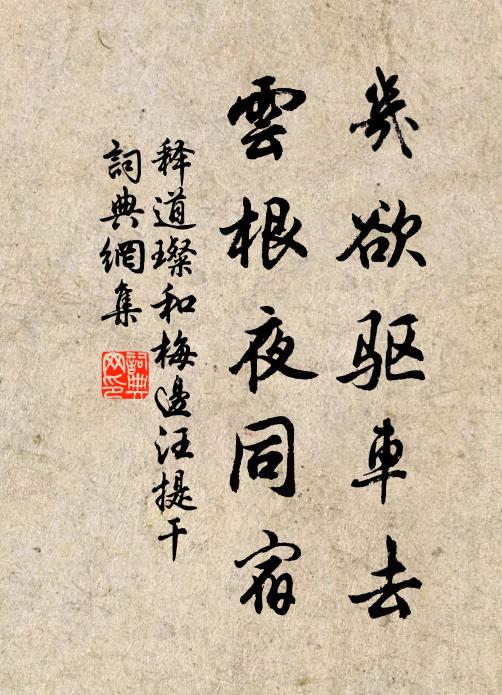 幾欲驱車去
雲根夜同宿
释道璨和梅邊汪提干
詞典網集
詞典
网印